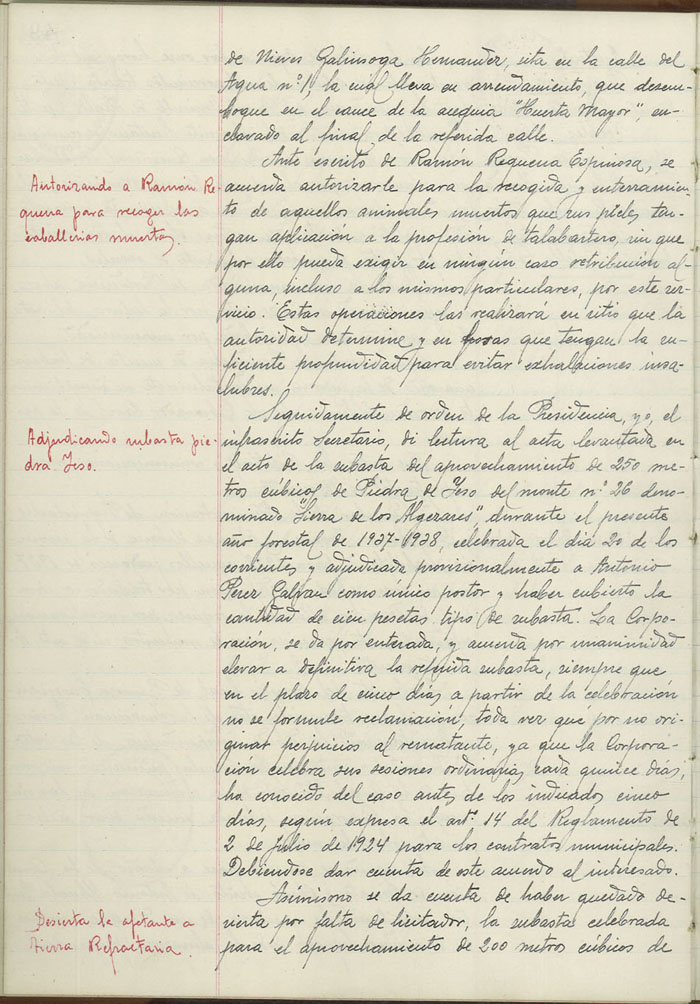 de Nieves Galinsoga Hernandez, sita en la calle del
Agua nº 1, la cual lleva en arrendamiento, que desem-
boque en el cauce de la acequia "Huerta Mayor", en-
clavado al final de la referida calle.
Ante escrito de Ramón Requena Espinosa, se
acuerda autorizarle para la recogida y enterramien-
to de aquellos animales muertos que sus pieles ten-
gan aplicación a la profesión de talabartero, sin que
por ello pueda exigir en ningún caso retribución al-
guna, incluso a los mismos particulares, por este ser-
vicio. Estas operaciones las realizará en sitio que la
autoridad determine y en fosas que tengan la su-
ficiente profundidad para evitar exhalaciones insa-
lubres.
Autorizando a Ramón Re-
quena para recoger las
caballerias muertas.
Seguidamente de orden de la Presidencia, yo, el
infrascrito Secretario, di lectura al acta levantada en
el acto de la subasta del aprovechamiento de 250 me-
tros cúbicos de Piedra de Yeso del monte nº 26 deno-
minado "Sierra de los Algezares", durante el presente
año forestal de 1937-1938, celebrada el día 20 de los
corrientes y adjudicada provisionalmente a Antonio
Perez Galvan como único postor y haber cubierto la
cantidad de cien pesetas tipo de subasta. La Corpo-
ración, se da por enterada, y acuerda por unanimidad
elevar a definitiva la referida subasta, siempre que
en el plazo de cinco días a partir de la celebración
no se formule reclamación, toda vez que por no ori-
ginar perjuicios al rematante, ya que la Corpora-
ción celebra sus sesiones ordinarias cada quince días,
ha conocido del caso antes de los indicados cinco
días, según expresa el artº 14 del Reglamento de
2 de Julio de 1924 para los contratos municipales.
Debiendose dar cuenta de este acuerdo al interesado.
Adjudicando subasta pie-
dra Yeso.
Asímismo se da cuenta de haber quedado de-
sierta por falta de licitador, la subasta celebrada
para el aprovechamiento de 200 metros cúbicos de
Desierta la afetante a
tierra Refractaria.